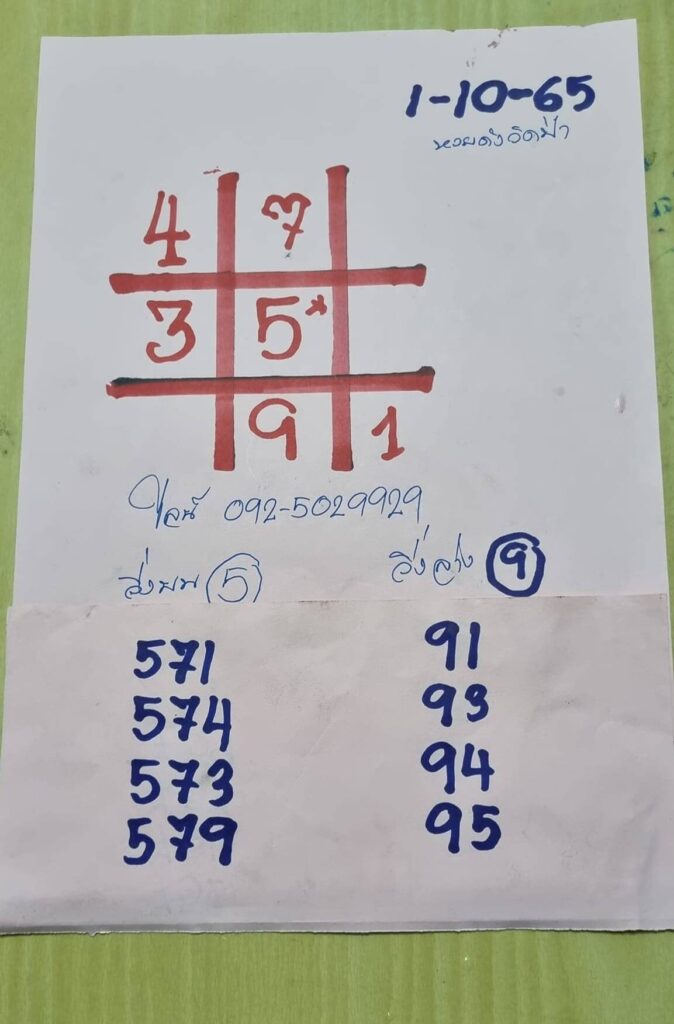 1-10-65
หวยดังวัดป่า
4 7
3 5*
9 1
ไลน์ 092-5029929
วิ่งบน 5
วิ่งล่าง 9
571 91
574 93
573 94
579 95